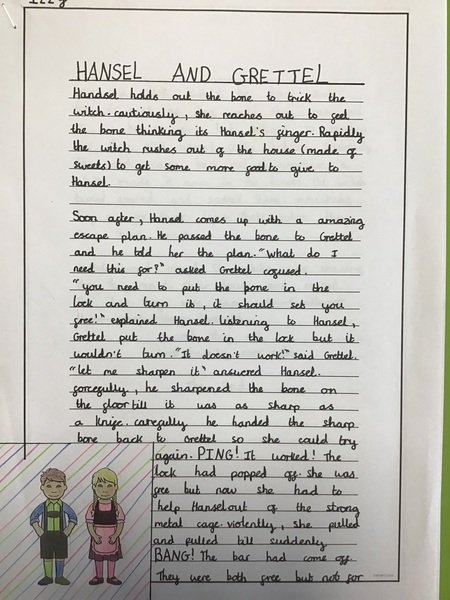 Izzy
HANSEL AND GRETTEL
Handsel holds out the bone to trick the
witch. cautiously, she reaches out to feel
the bone thinking its Hansel's finger. Rapidly
the witch rushes out of the house (made of
sweets) to get some more food to give to
Hansel.
Soon after, Hansel comes up with a amazing
escape plan. He passed the bone to Grettel
and he told her the plan. "What do I
need this for?" asked Grettel cofused.
"you need to put the bone in the
lock and turn it, it should set you
free!" explained Hansel. listening to Hansel,
Grettel put the bone in the lock but it
wouldn't turn. "It doesn't work!" said Grettel.
"let me sharpen it" answered Hansel.
forcefully, he sharpened the bone on
the floor till it was as sharp as
a knife. carefully he handed the sharp
bone back to Grettel so she could try
again. PING! It worked! The
lock had popped off. She was
free but now she had to
help Hansel out of the strong
metal cage. violently, she pulled
and pulled till suddenly
BANG! The bar had come off.
They were both free but not for